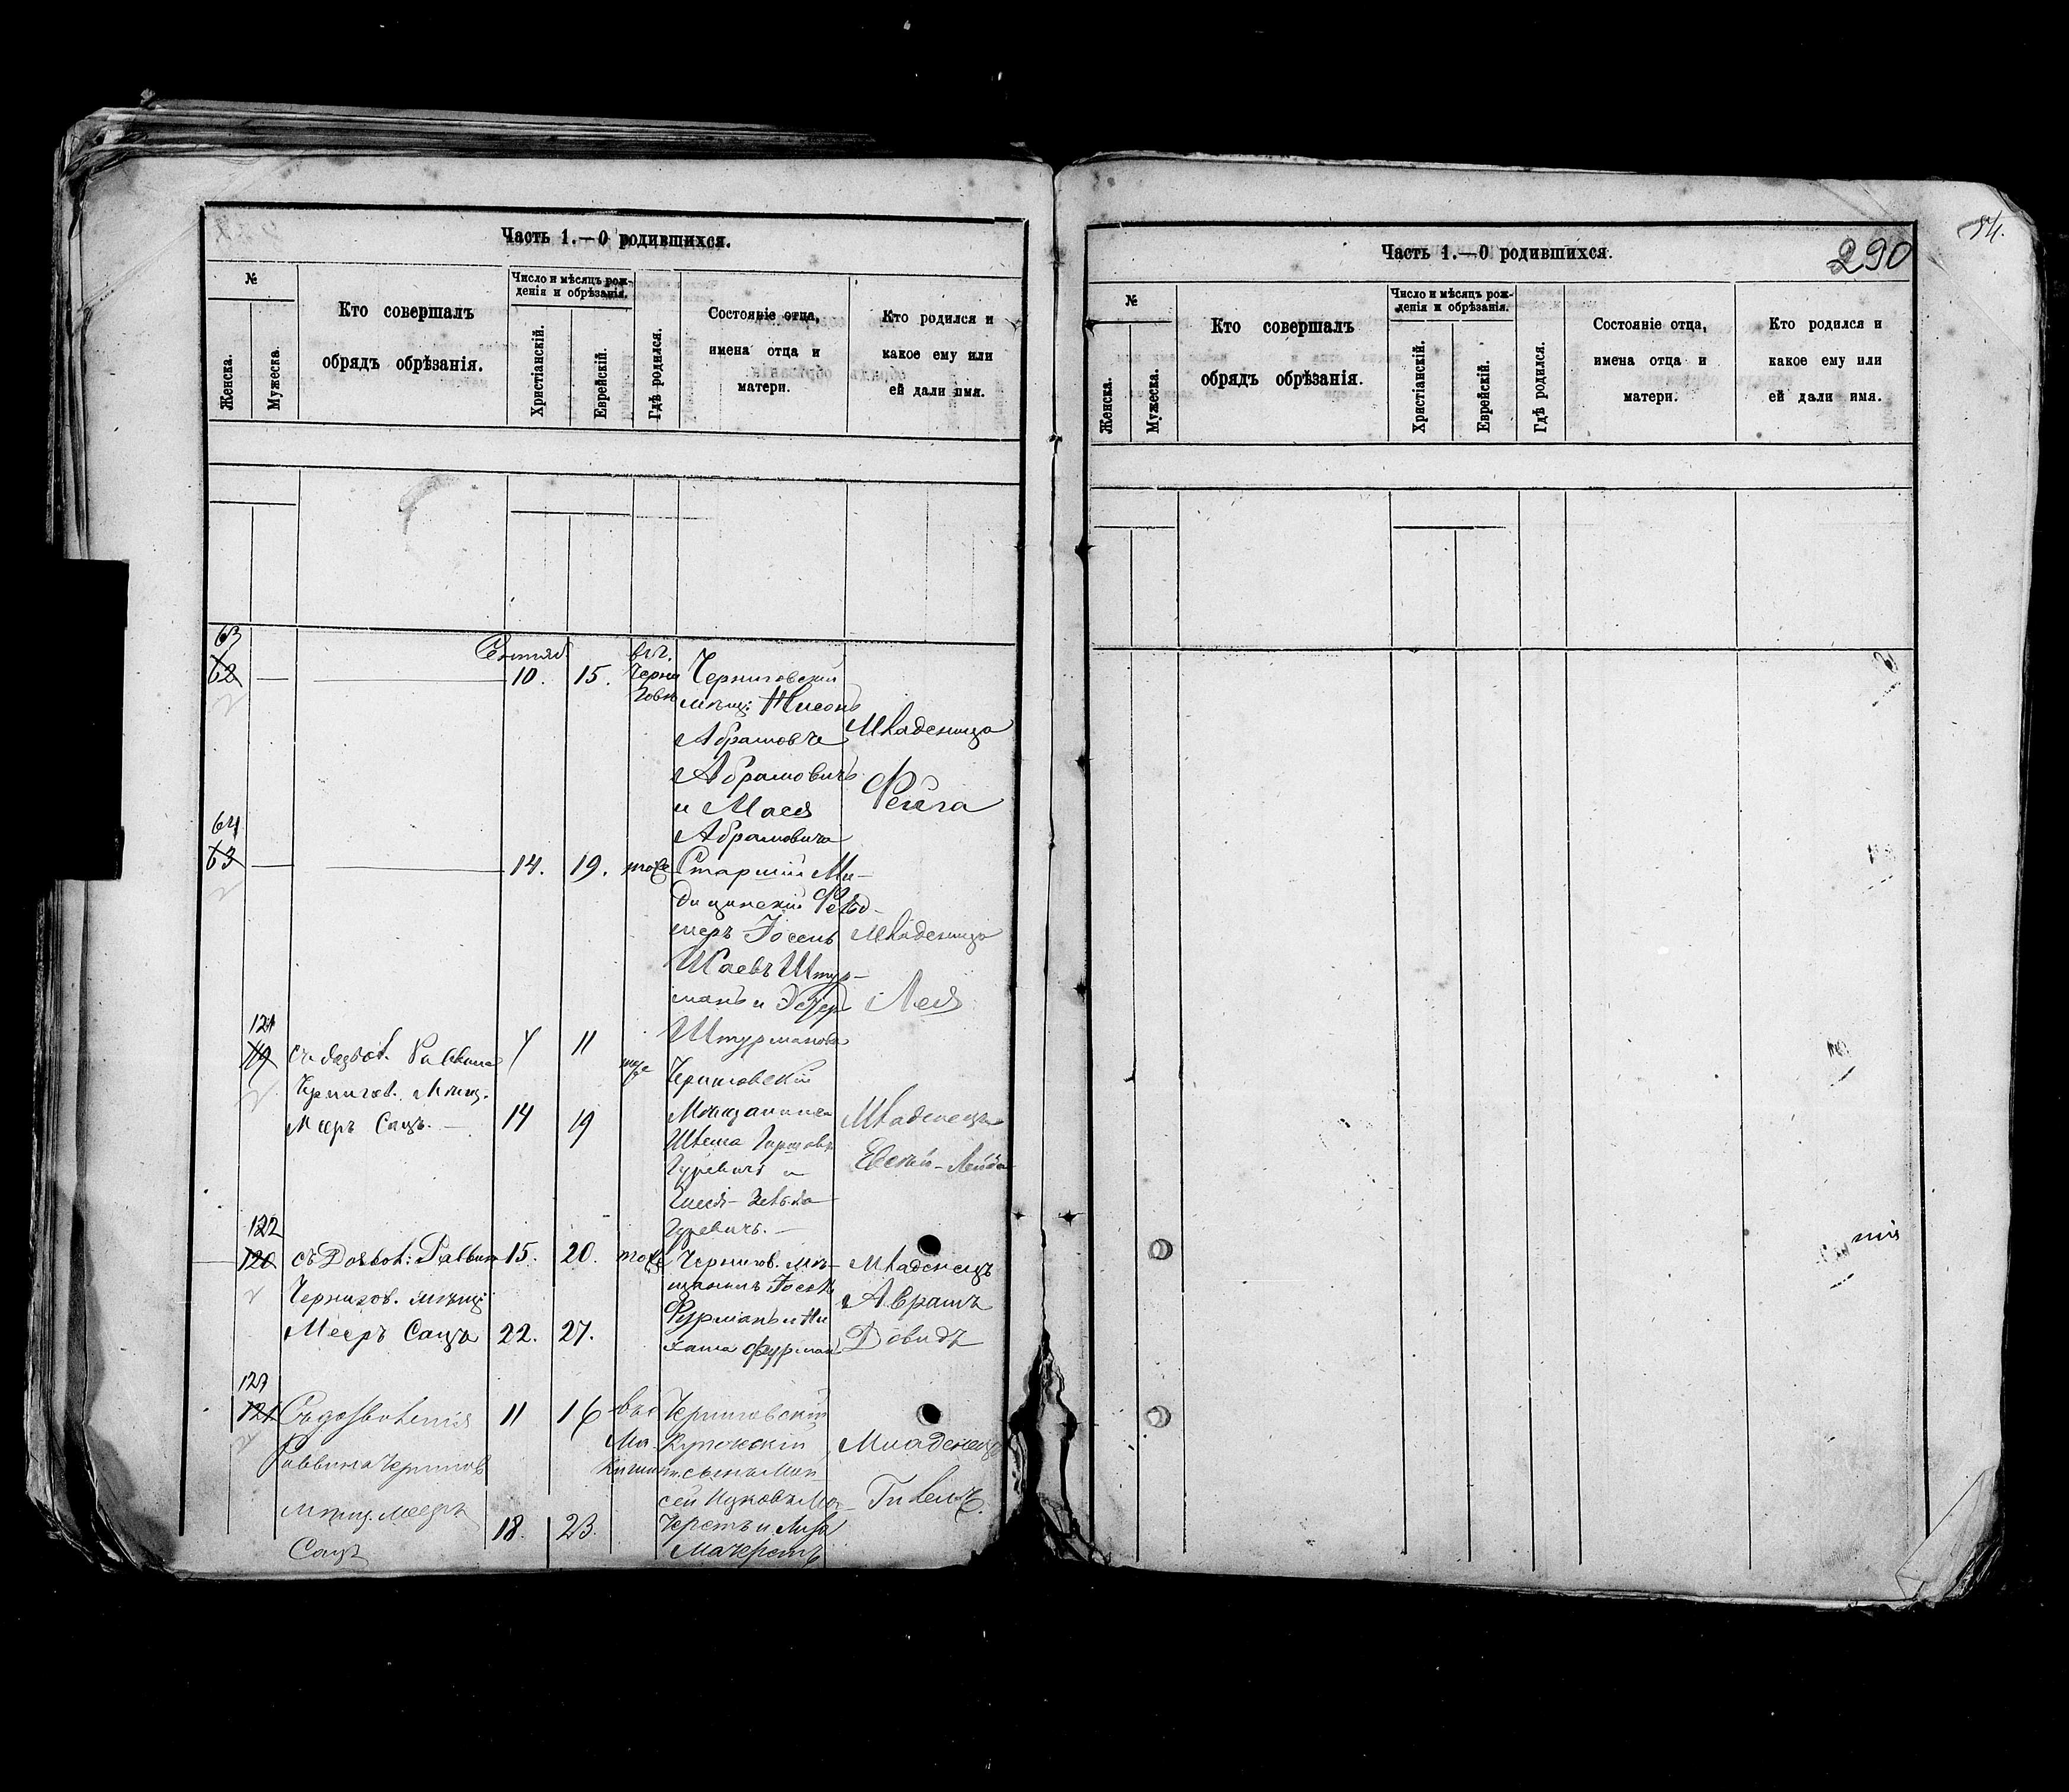 Часть 1.—О родившихся.
№
Женска.
Мужеска.
Кто совершалъ
обрядъ обрѣзанія.
Число и мѣсяцъ рож-
денія и обрѣзанія.
Христіанскій.
Еврейскій.
Гдѣ родился.
Состояніе отца,
имена отца и
матери.
Кто родился и
какое ему или
ей дали имя.
63
62
Сентяб
10.
15.
въ г.
Черни
говѣ
Черниговскій
мѣщ: Нисонъ
Абрамовъ
Абрамовичъ
и Мася
Абрамовича
Младеница
Фейга
64
63
14.
19.
тоже
Старшій Ме-
дицинскій Фельд-
шеръ Іосель
Шаевъ Штур-
манъ и Эстер
Штурманова
Младеница
Лея
121
119
Съ дозвол. Раввина
Чернигов. Мѣщ.
Мееръ Сацъ.
7
11
14
19
тоже
Черниговскій
Мѣщанинъ
Шлема Гиршовъ
Гуревичъ и
Гуревичъ.
Младенецъ
Евсей-Лейба
122
120
съ Дозвол: Раввина
Чернигов. мѣщ
Мееръ Сацъ
15.
20.
22.
27.
тоже
Чернигов. мѣ-
щанинъ Іосель
Фурманъ и Не
хама Фурман
Младенецъ
Аврамъ
Довидъ
123
121
Съ дозволенія
Раввина Чернигов
мѣщ. Мееръ
Сацъ
11
16
18.
23.
въ с
Черниговскій
Купеческій
сынъ Мои-
сей Ицковъ Ма-
черетъ и Лиза
Мачеретъ
Младенецъ
Гилель
Часть 1.—О родившихся.
290
54.
№
Женска.
Мужеска.
Кто совершалъ
обрядъ обрѣзанія.
Число и мѣсяцъ рож-
денія и обрѣзанія.
Христіанскій.
Еврейскій.
Гдѣ родился.
Состояніе отца,
имена отца и
матери.
Кто родился и
какое ему или
ей дали имя.